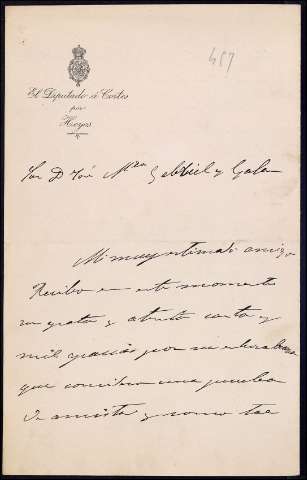 457
El Diputado á Cortes
por
Hoyos
Sor D José Mra Gabriel y Galan
Mi muy estimado amigo
Recibo en este momento
su grata y atenta carta y
mil gracias por su enhorabuena
que considero una prueba
de amistad y como tal